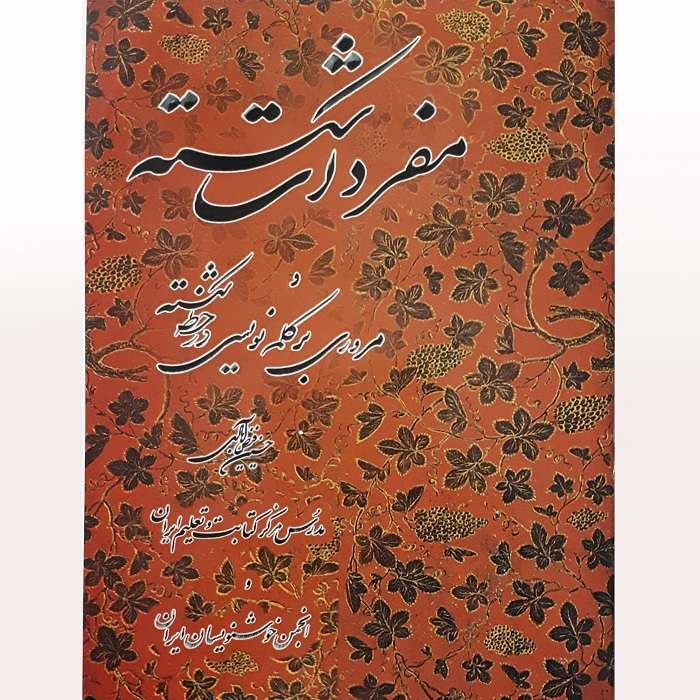 مفردات شکسته
و
مروری بر کلمه نویسی در خط شکسته
حسین
مدرس مرکز کتابت و تعلیم ایران
و
انجمن خوشنویسان ایران